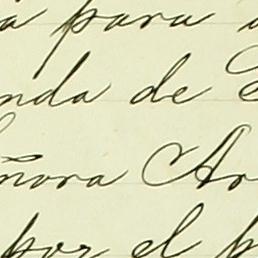 a para
nda de
ñora Ar
por el p